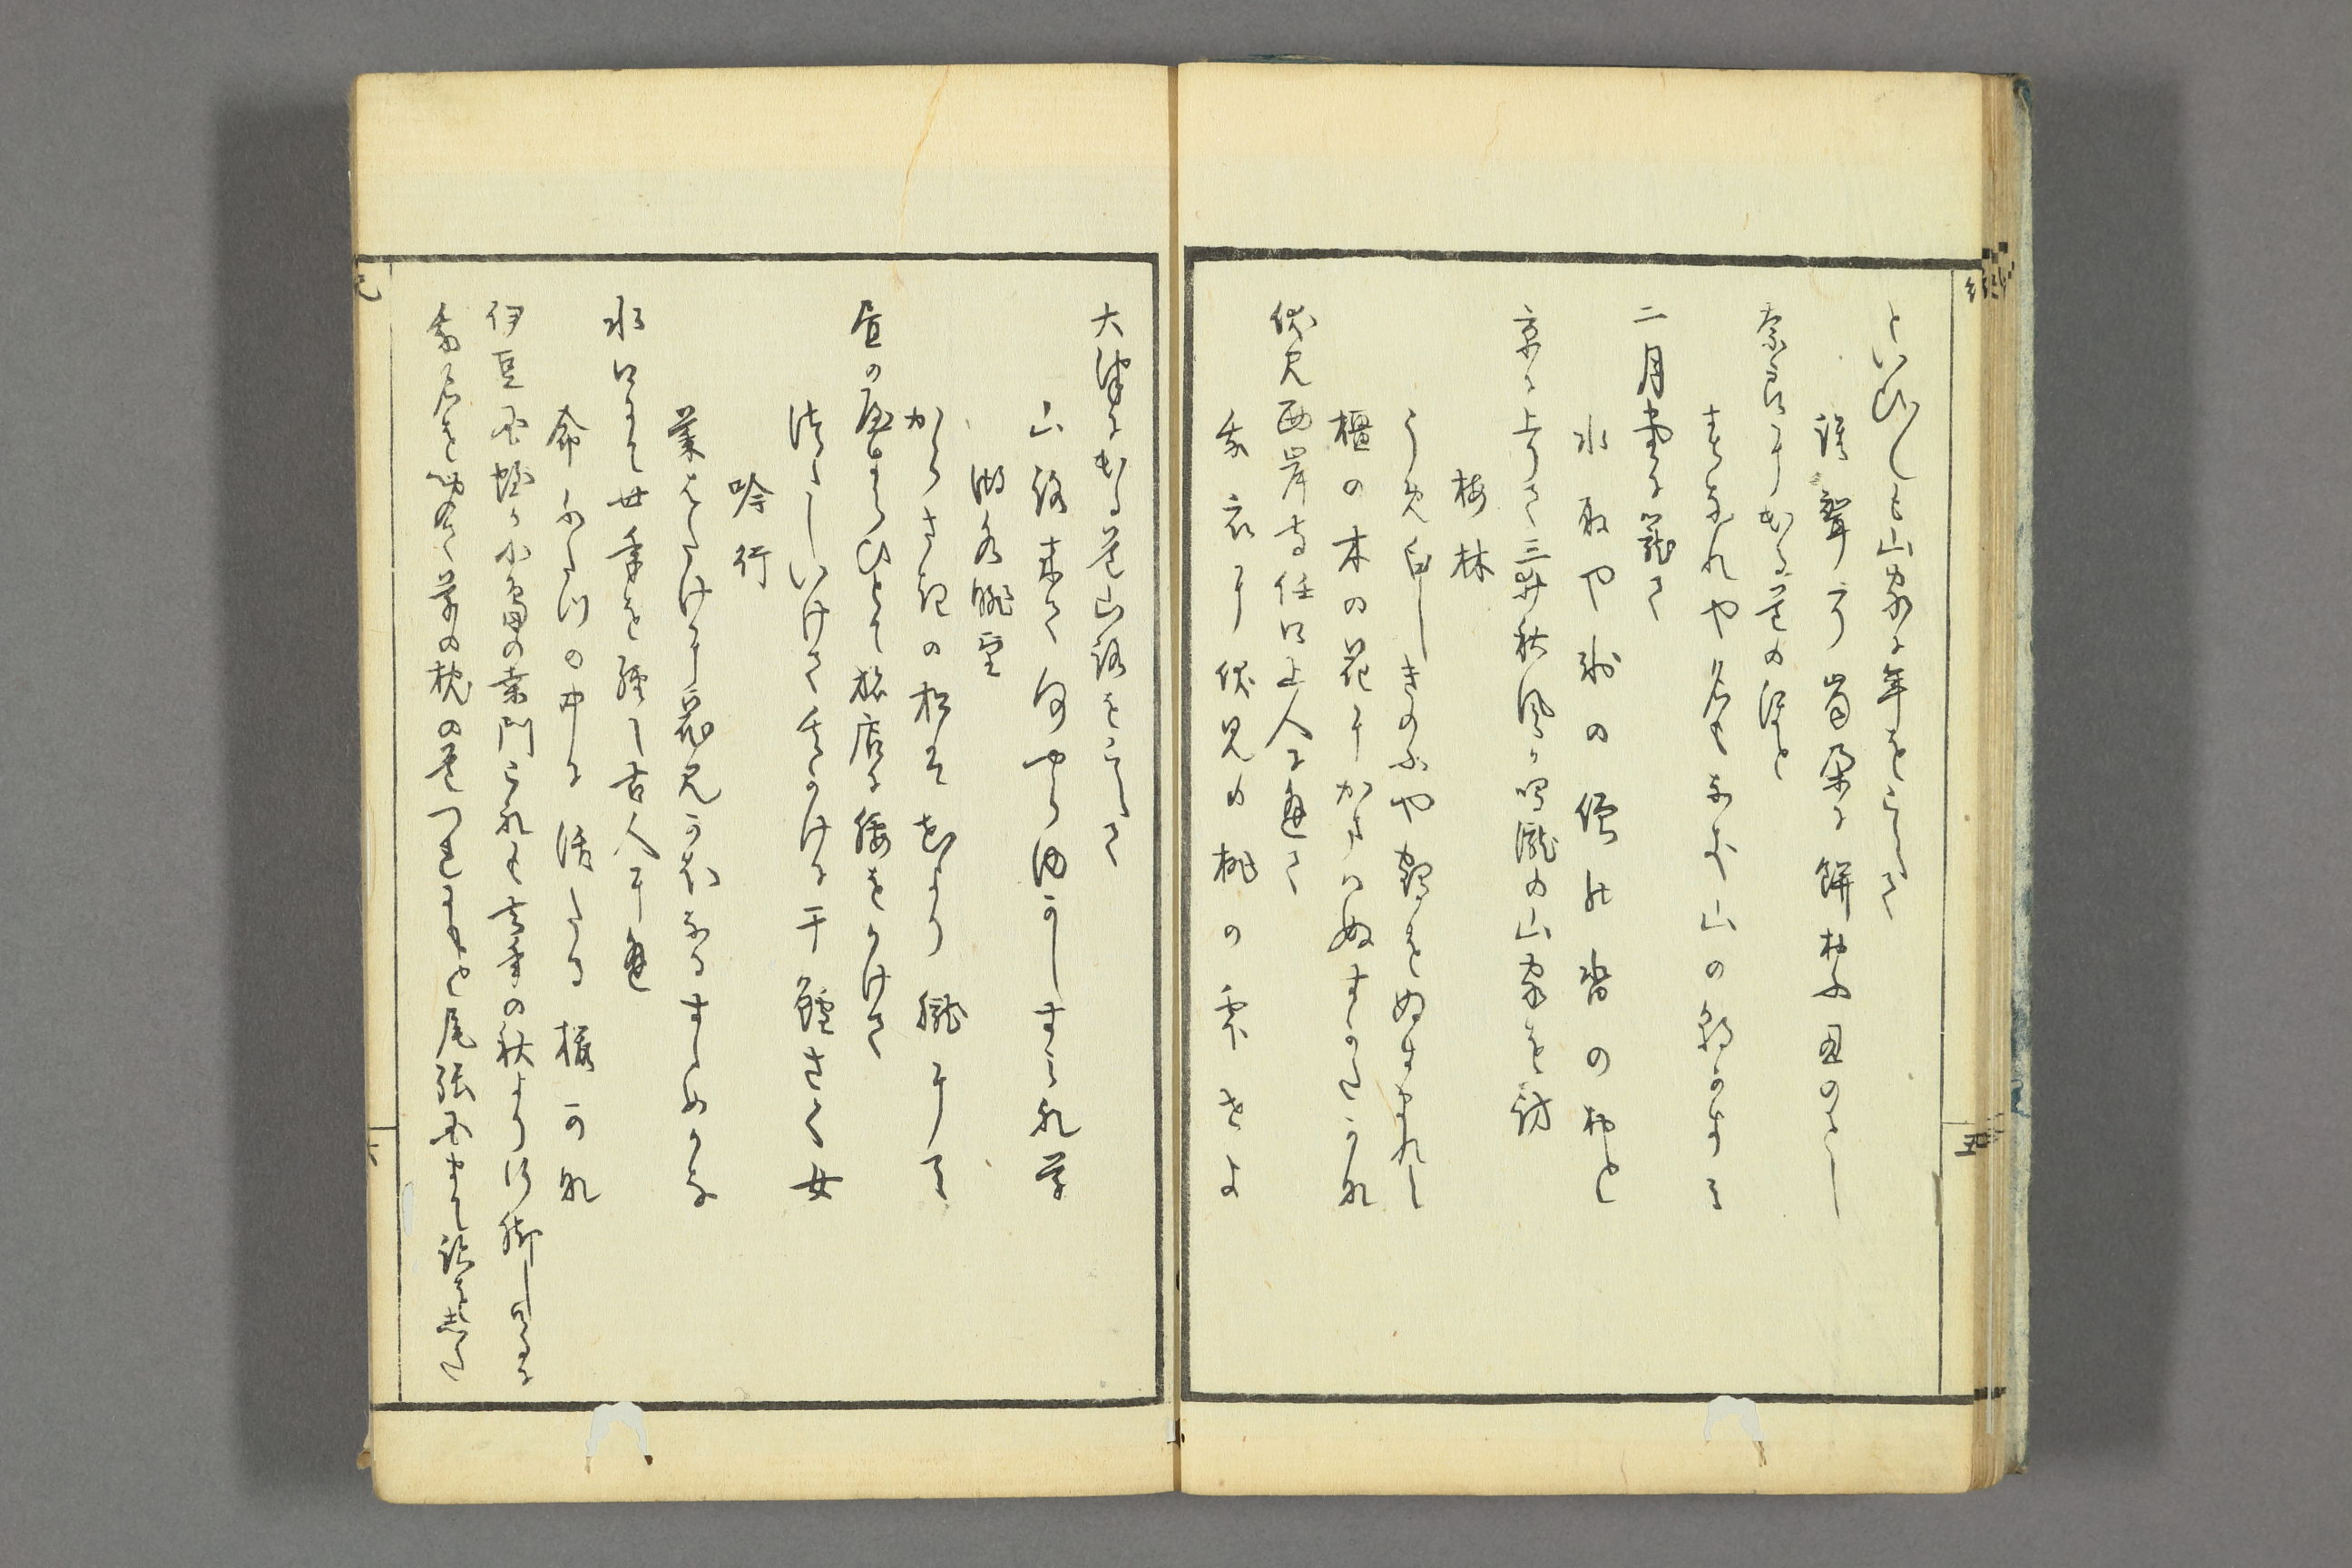 といひ〳〵も山家に年をこして
誰聟ソ歯朶に餅おふ丑のとし
奈良に出る道のほと
春なれや名もなき山の朝かすみ
二月堂に籠て
水取や氷の僧の沓のおと
京に上りて三井秋風か鳴瀧の山家を訪
梅林
うめ白しきのふや鶴をぬすまれし
樫の木の花にかまはぬすかたかな
伏見西岸寺任口上人に逢て
我衣に伏見の桃の雫せよ
五
大津に出る道山路をこして
山路来て何やらゆかしすみれ草
湖水眺望
からさきの松は花より朧にて
昼の休らひとて旅店に腰をかけて
つゝしいけて其かけに干鱈さく女
吟行
菜はたけに花見かほなるすゝめかな
水口にて廿年を経て古人に逢
命ふたつの中に活たる桜かな
伊豆国蛭か小島の桑門これも去年の秋より行脚しけるに
我名を聞て草の枕の道つれにもと尾張国まて跡をしたひ